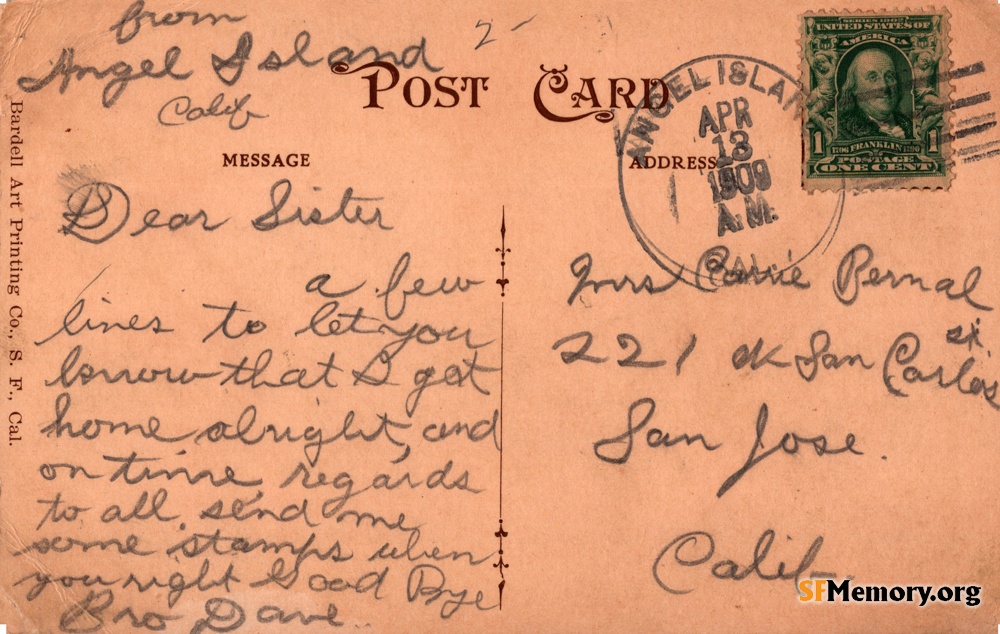 from
Angel Island
Calif
2-
POST CARD
MESSAGE
ADDRESS
ANGEL ISLAN
APR
13
1909
A.M.
CAL.
SERIES 1902
UNITED STATES OF
AMERICA
1 1
1706 FRANKLIN 1790
POSTAGE
ONE CENT
Bardell Art Printing Co., S. F., Cal.
Dear Sister
a few
lines to let you
know that I got
home alright, and
on time, regards
to all. send me
some stamps when
you right Good Bye
Bro Dave
Mrs Carrie Bernal
221 San Carlos
st.
San Jose.
Calif
SFMemory.org